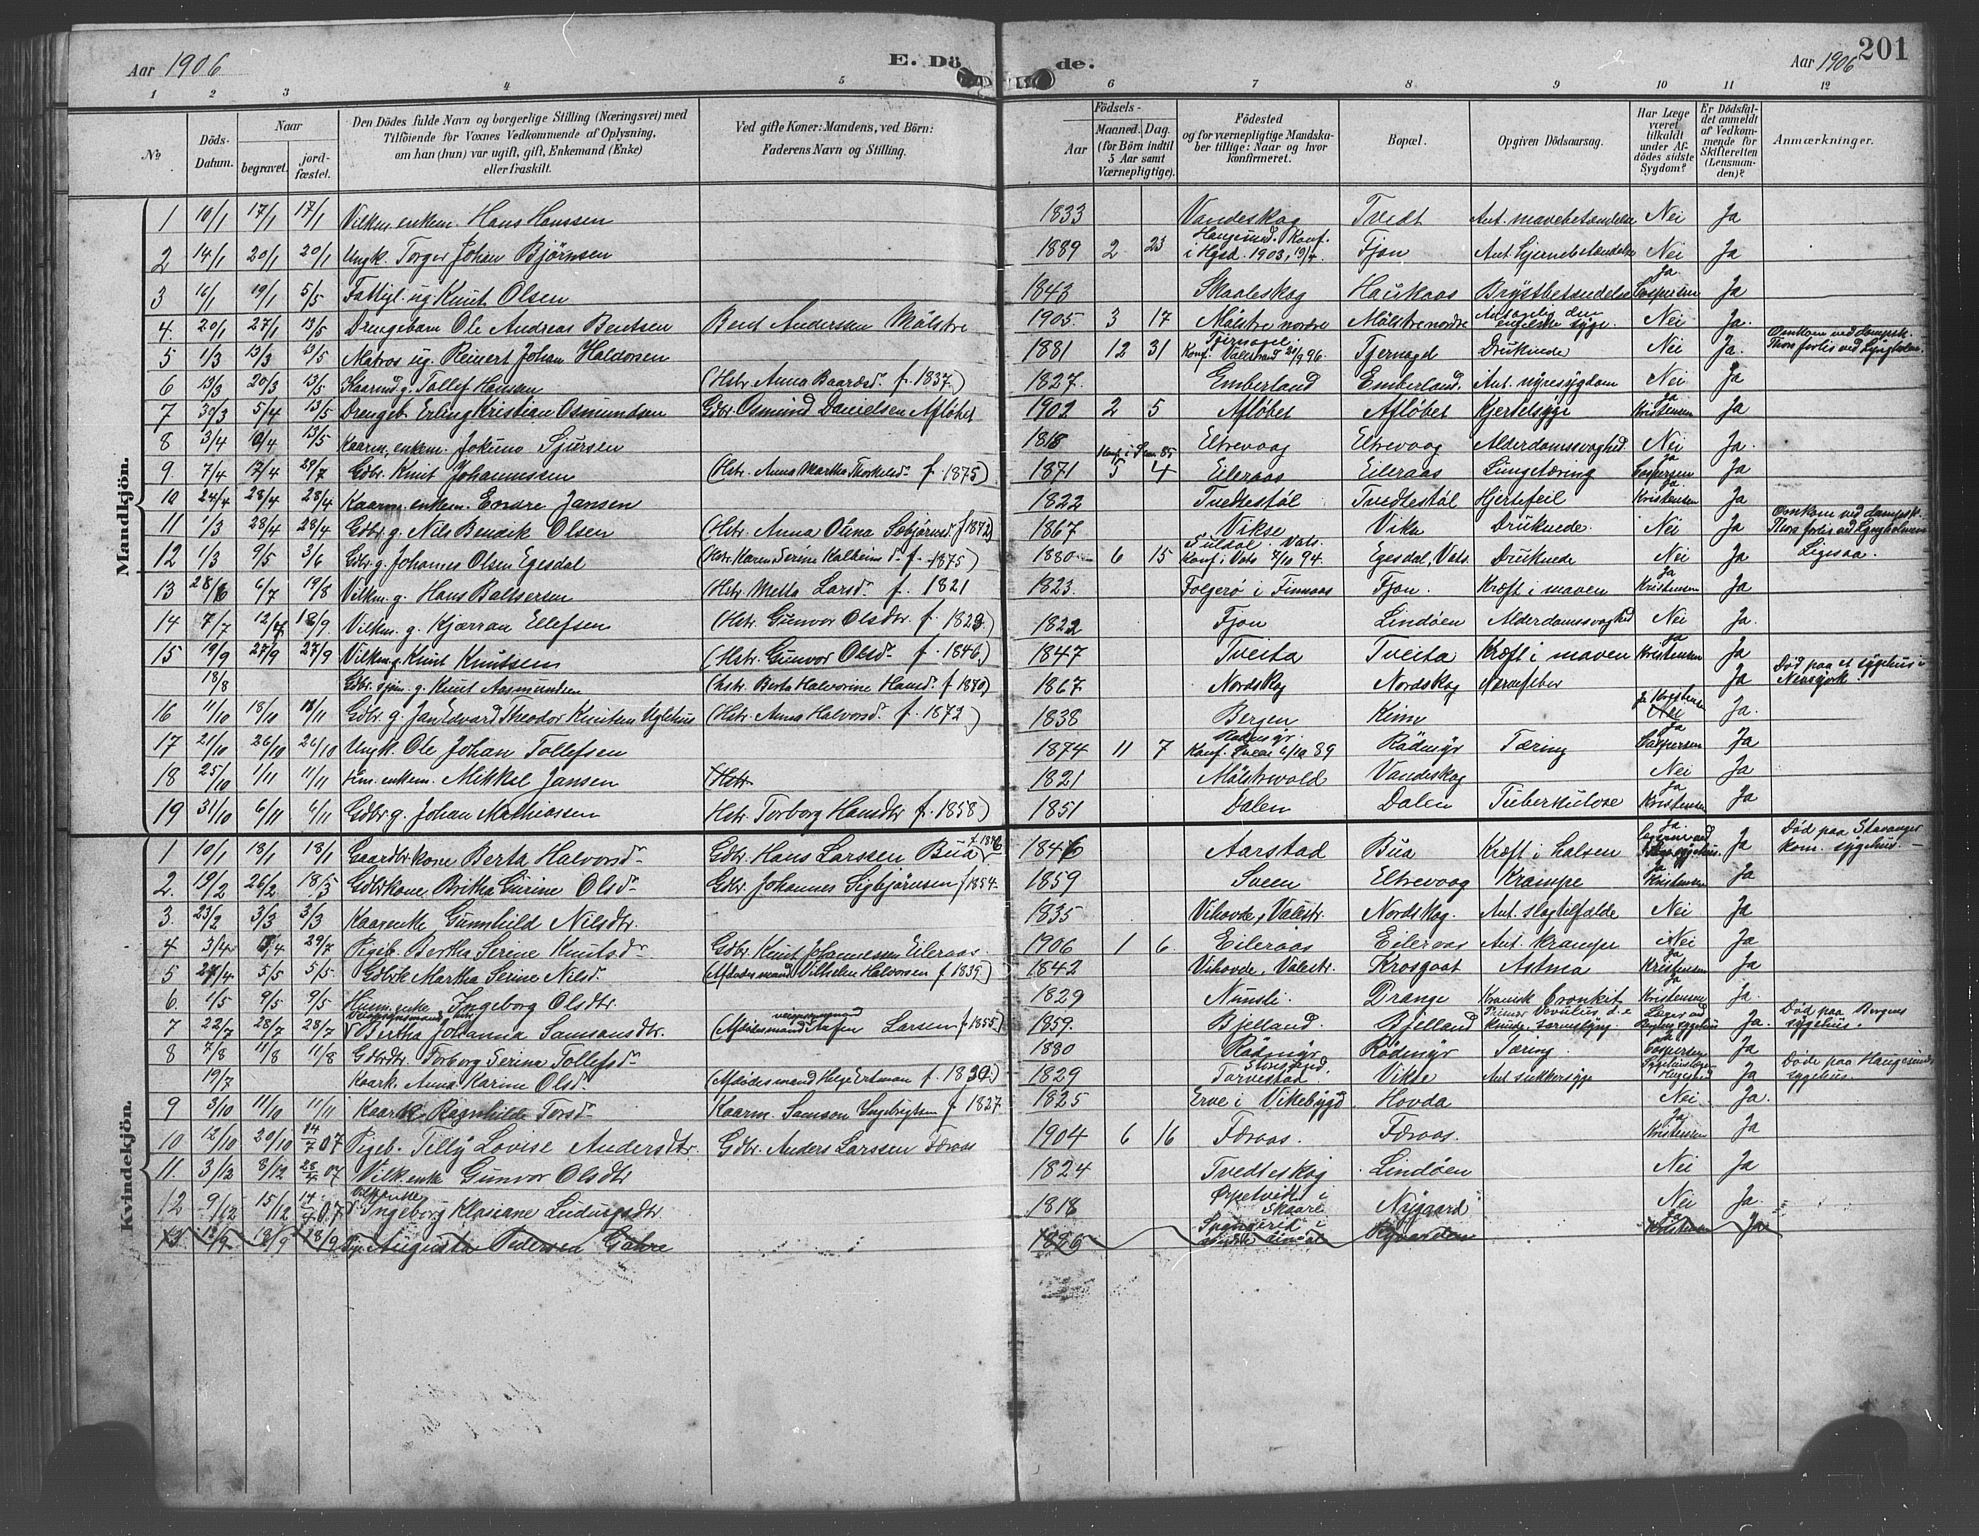 Aar 1906 E. Dö de. Aar 1906 201
1 2 3 4 5 6 7 8 9 10 11 12
No. Döds-Datum. Naar begravet. jord-fæstet. Den Dödes fulde Navn og borgerlige Stilling (Næringsvei) med Tilföiende for Voxnes Vedkommende af Oplysning, om han (hun) var ugift, gift, Enkemand (Enke) eller fraskilt. Ved gifte Koner: Mandens, ved Börn: Faderens Navn og Stilling. Födsels- Aar Maaned. Dag. (for Börn indtil 5 Aar samt Værnepligtige). Födested og for værnepligtige Mandskaber tillige: Naar og hvor konfirmeret. Bopæl. Opgiven Dödsaarsag. Har Læge været tilkaldt under Afdödes sidste Sygdom? Er Dödsfaldet anmeldt af Vedkommende for Skifteretten (Lensmanden)? Anmærkninger.
Mandkjön.
1 10/1 17/1 17/1 Vilkm. enkem. Hans Hanssen 1833 Vandeskog Tvedt Ant. mavebetændelse Nei Ja
2 14/1 20/1 20/1 Ungk. Torger Johan Bjørnsen 1889 2 23 Haugesund. Konf. i Hgsd. 1903, 19/4. Fjon Ant. hjernebetændelse Nei Ja
3 16/1 19/1 5/5 Fattigl. ug Knut Olsen 1843 Skaaleskog Haukaas Brystbetændelse Ja Caspersen Ja
4. 20/1 27/1 13/5 Drengebarn Ole Andreas Bentsen Bend Anderssen Mölstre 1905. 3 17 Mölstre nordre Mölstre nordre Antagelig den engelske syge. Nei Ja.
5 1/3 13/3 Matros ug. Reinert Johan Haldorsen 1881 12 31 Tjernagel. Konf. Valestrand 96. Tjernagel Druknede Nei Ja. Omkom ved dampsk. Thor forlis ved Lyngholm
6 13/3 20/3 13/5 g. Tollef Hansen (Hstr. Anna Baardsd. f. 1837.) 1827. Emberland Emberland. Ant. nyresygdom Nei Ja
7 30/3 5/4 13/5 Drengeb. Erling Kristian Osmundsen Gdbr. Osmund Danielsen Afløbet 1902 2 5 Afløbet Afløbet Kjertelsyge Ja Kristensen Ja
8 3/4 13/5 Kaarm. enkem. Jokum Sjursen 1818 Eltrevaag Eltrevaag Alderdomssvaghed. Nei Ja.
9 7/4 17/4 29/7 Gdbr. Knut Johannessen (Hstr. Anna Martha Thorkelsd. f. 1875) 1871 5 4 Eileraas Eileraas Lungetæring Ja Caspersen Ja
10 24/4 28/4 28/4 Kaarm. enkem. Endre Jansen 1822 Tvedtestøl Tvedtestøl Hjertefeil Ja Kristensen Ja
11 1/3 28/4 28/4 Gdbr. g. Nils Bendik Olsen (Hstr. Anna Olina f 1872) 1867 Vikse Vikse Druknede. Nei Ja Omkom ved dampsk. Thor forlis ved Lyngholmen
12 1/3 9/5 3/6 Gdbr. g. Johannes Olsen Egesdal (Hstr. Karen Serine f. 1875) 1880 6 15 Suldal. Vats. Konf. i Vats 7/10 94. Egesdal, Vats. Druknede Nei Ja
13 28/6 6/7 19/8 Vilkm. g. Hans Baltsersen (Hstr. Metta Larsd. f. 1821 1823. Folgerø i Finnaas Fjon. Kræft i maven Ja Kristensen Ja
14 7/7 12/7 Vilkm. g. Kjærran Ellefsen (Hstr. Gunvor Olsdtr f. 1823.) 1822 Fjon Lindøen Alderdomssvaghed Nei Ja.
15 19/9 27/9 27/9 Vilkm. g. Knut Knutsen (Hstr. Gunvor Olsd. f. 1846.) 1847 Tveita Tveita Kræft i maven Ja Kristensen Ja
18/8 Gdbr. g. Knut Aasmundsen (hstr. Berta Halvorine Hansd. f 1870) 1867 Nordskog Nordskog Nervefeber Ja Död paa et sygehus i Newyork.
16 11/10 18/10 Gdbr g. Jan Edvard Theodor Knutsen Uglehus (Hstr. Anna Halvorsd. f. 1872) 1838 Bergen Kinn Ja Kristensen Nei Ja.
17 21/10 26/10 26/10 Ungk. Ole Johan Tollefsen 1874 11 7 Rødmyr. Konf. Sveen 6/10 89 Rødmyr Tæring Ja Caspersen Ja
18 25/10 1/11 11/11 enkem. Mikkel Jansen (Hstr. 1821 Mölstrevold Vandeskog Nei Ja
19 31/10 6/11 6/11 Gdbr g. Johan Mathiassen Hstr. Torborg Hansdtr f. 1858) 1851 Dalen Dalen Tuberkulose Ja Kristensen Ja
Kvindekjön.
1 10/1 18/1 18/1 Gaardbr kone Berta Halvorsd. Gdbr. Hans Larssen Bua 1846 Aarstad Bua Kræft i halsen Ja Ja Död paa Stavanger kom. sygehus.
2. 19/2 26/2 18/3 Gdbrkone. Britha Gurine Olsd. Gdbr. Johannes Sigbjørnsen f 1854 1859 Sveen Eltrevaag Krampe Ja Kristensen Ja
3. 23/2 3/3 3/3 Kaarenke Gunnhild Nilsdtr. 1835 Vihovde, Valestr. Nordskog. Ant. slagtilfælde Nei Ja
4 3/4 29/7 Pigeb. Bertha Serine Knutsd. Gdbr. Knut Johannessen Eileraas 1906 1 6. Eileraas Eileraas Ant. krampe Nei Ja
5 27/4 5/5 5/5. Gdbrk Martha Serine Nilsd. (Afdödes mand Vilhelm Halvorsen f 1839) 1842 Vihovde, Valestr. Krosgaat Astma Ja Kristensen Ja
6. 1/5 9/5 9/5 Husm. enke. Ingeborg Olsdtr. 1829 Nunsli. Drange Kronisk bronkit Kristensen Ja.
7 22/7 28/7 28/7 Bertha Johanna Samsonsdtr. (Afdödes mand Larsen f. 1855) 1859. Bjelland Bjelland Ja. Död paa Bergens sygehus.
8 7/8 11/8 11/8 Gdbrdtr Torborg Serina Tollefsd. 1880 Rødmyr Rødmyr Tæring. Ja Caspersen Ja
19/7 Kaark. Anna Karine Olsd. (Afdödes mand Helge Ertman f. 1834.) 1829 Torvestad Vikse Ant. sukkersyge Ja Döde paa Haugesunds sygehus.
9 3/10 11/10 11/11 Kaark Ragnhilde Torsd. Kaarm. Samson Ingebrigtsen f 1827. 1825 Erve i Vikebygd Hovda Nei Ja.
10 12/10 20/10 14/7 07 Pigeb. Tilly Lovise Andersdtr. Gdbr. Anders Larssen Færaas 1904 6 16 Færaas. Færaas. Ja Kristensen Ja
11. 3/12 8/12 07 Vilk. enke Gunvor Olsdtr 1824 Tvedteskog Lindøen Nei Ja
12 9/12 15/12 14/4 07 Ingeborg Klaiane Ludvigsdtr 1818 Ørpetvedt i Skaare Nygaard Nei Ja.
13 12/9 18/9 Augusta Pedersen 1886 Ja Kristensen Ja